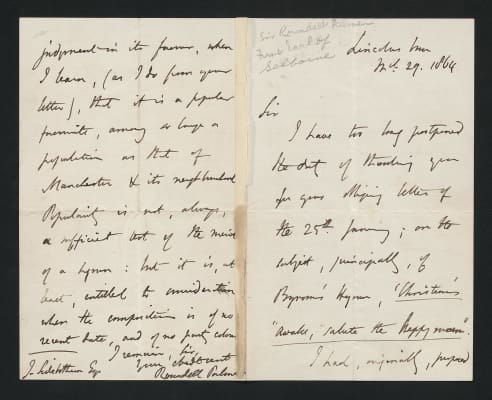 Sir Roundell Palmer
First Earl of
Selborne
Lincolns Inn
29. 1864
Sir
I have too long postponed
the duty of thanking you
for your obliging letter of
the 25th January; on the
subject, principally, of
Byrom's Hymn, "Christians
"awake, salute the happy morn".
I had, originally, prepared
judgment in its favour, when
I learn, (as I do from your
letter), that it is a popular
favourite, among so large a
population as that of
Manchester & its neighbourhood
Popularity is not, always,
a sufficient test of the merit
of a hymn: but it is, at
least, entitled to consideration
when the composition is of no
recent date, and of no party colour
I remain, Sir,
Your obedt servt
Roundell Palmer
J. Sidebotham Esqr